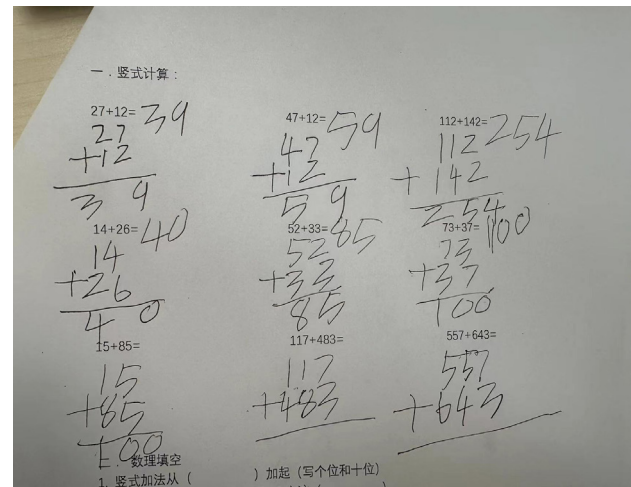 一．竖式计算：
27+12=39
27
+12
39
47+12=59
47
+12
59
112+142=254
112
+142
254
14+26=40
14
+26
40
52+33=85
52
+33
85
73+37=100
73
+37
100
15+85=
15
+85
100
117+483=
117
+483
557+643=
557
+643
数理填空
1. 竖式加法从（ ）加起（写个位和十位）